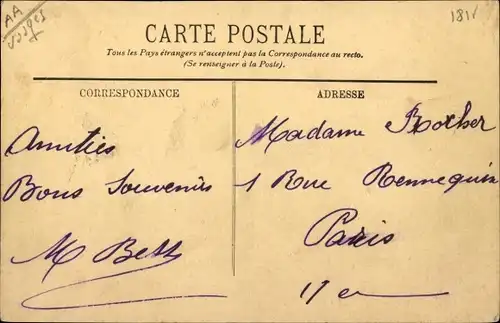 AA
Vosges
1818
CARTE POSTALE
Tous les Pays étrangers n'acceptent pas la Correspondance au recto.
(Se renseigner à la Poste).
CORRESPONDANCE
Amitiés
Bons Souvenirs
M Bett
ADRESSE
Madame Rocher
1 Rue Rennequin
Paris
17 e